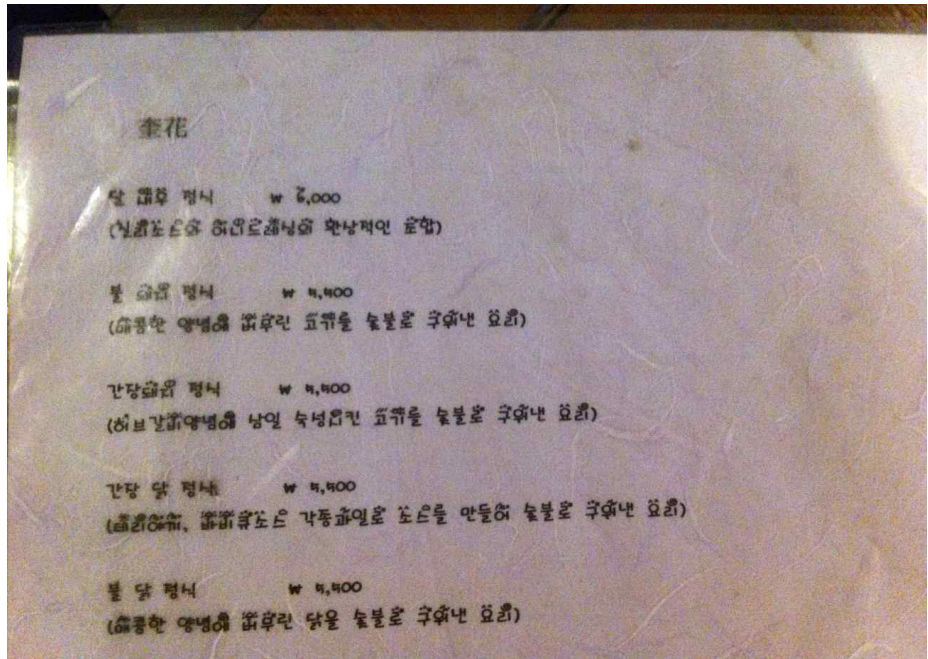 奎花
정식 ₩ 6,000
(칠리소스와 허니드레싱의 환상적인 조합)
불 돼지 정식 ₩ 5,500
(매콤한 양념에 버무린 고기를 숯불로 구워낸 요리)
간장돼지 정식 ₩ 5,500
(허브갈비양념에 삼일 숙성시킨 고기를 숯불로 구워낸 요리)
간장 닭 정식 ₩ 5,500
(데리야끼, 바비큐소스 각종과일로 소스를 만들어 숯불로 구워낸 요리)
불 닭 정식 ₩ 5,500
(매콤한 양념에 버무린 닭을 숯불로 구워낸 요리)